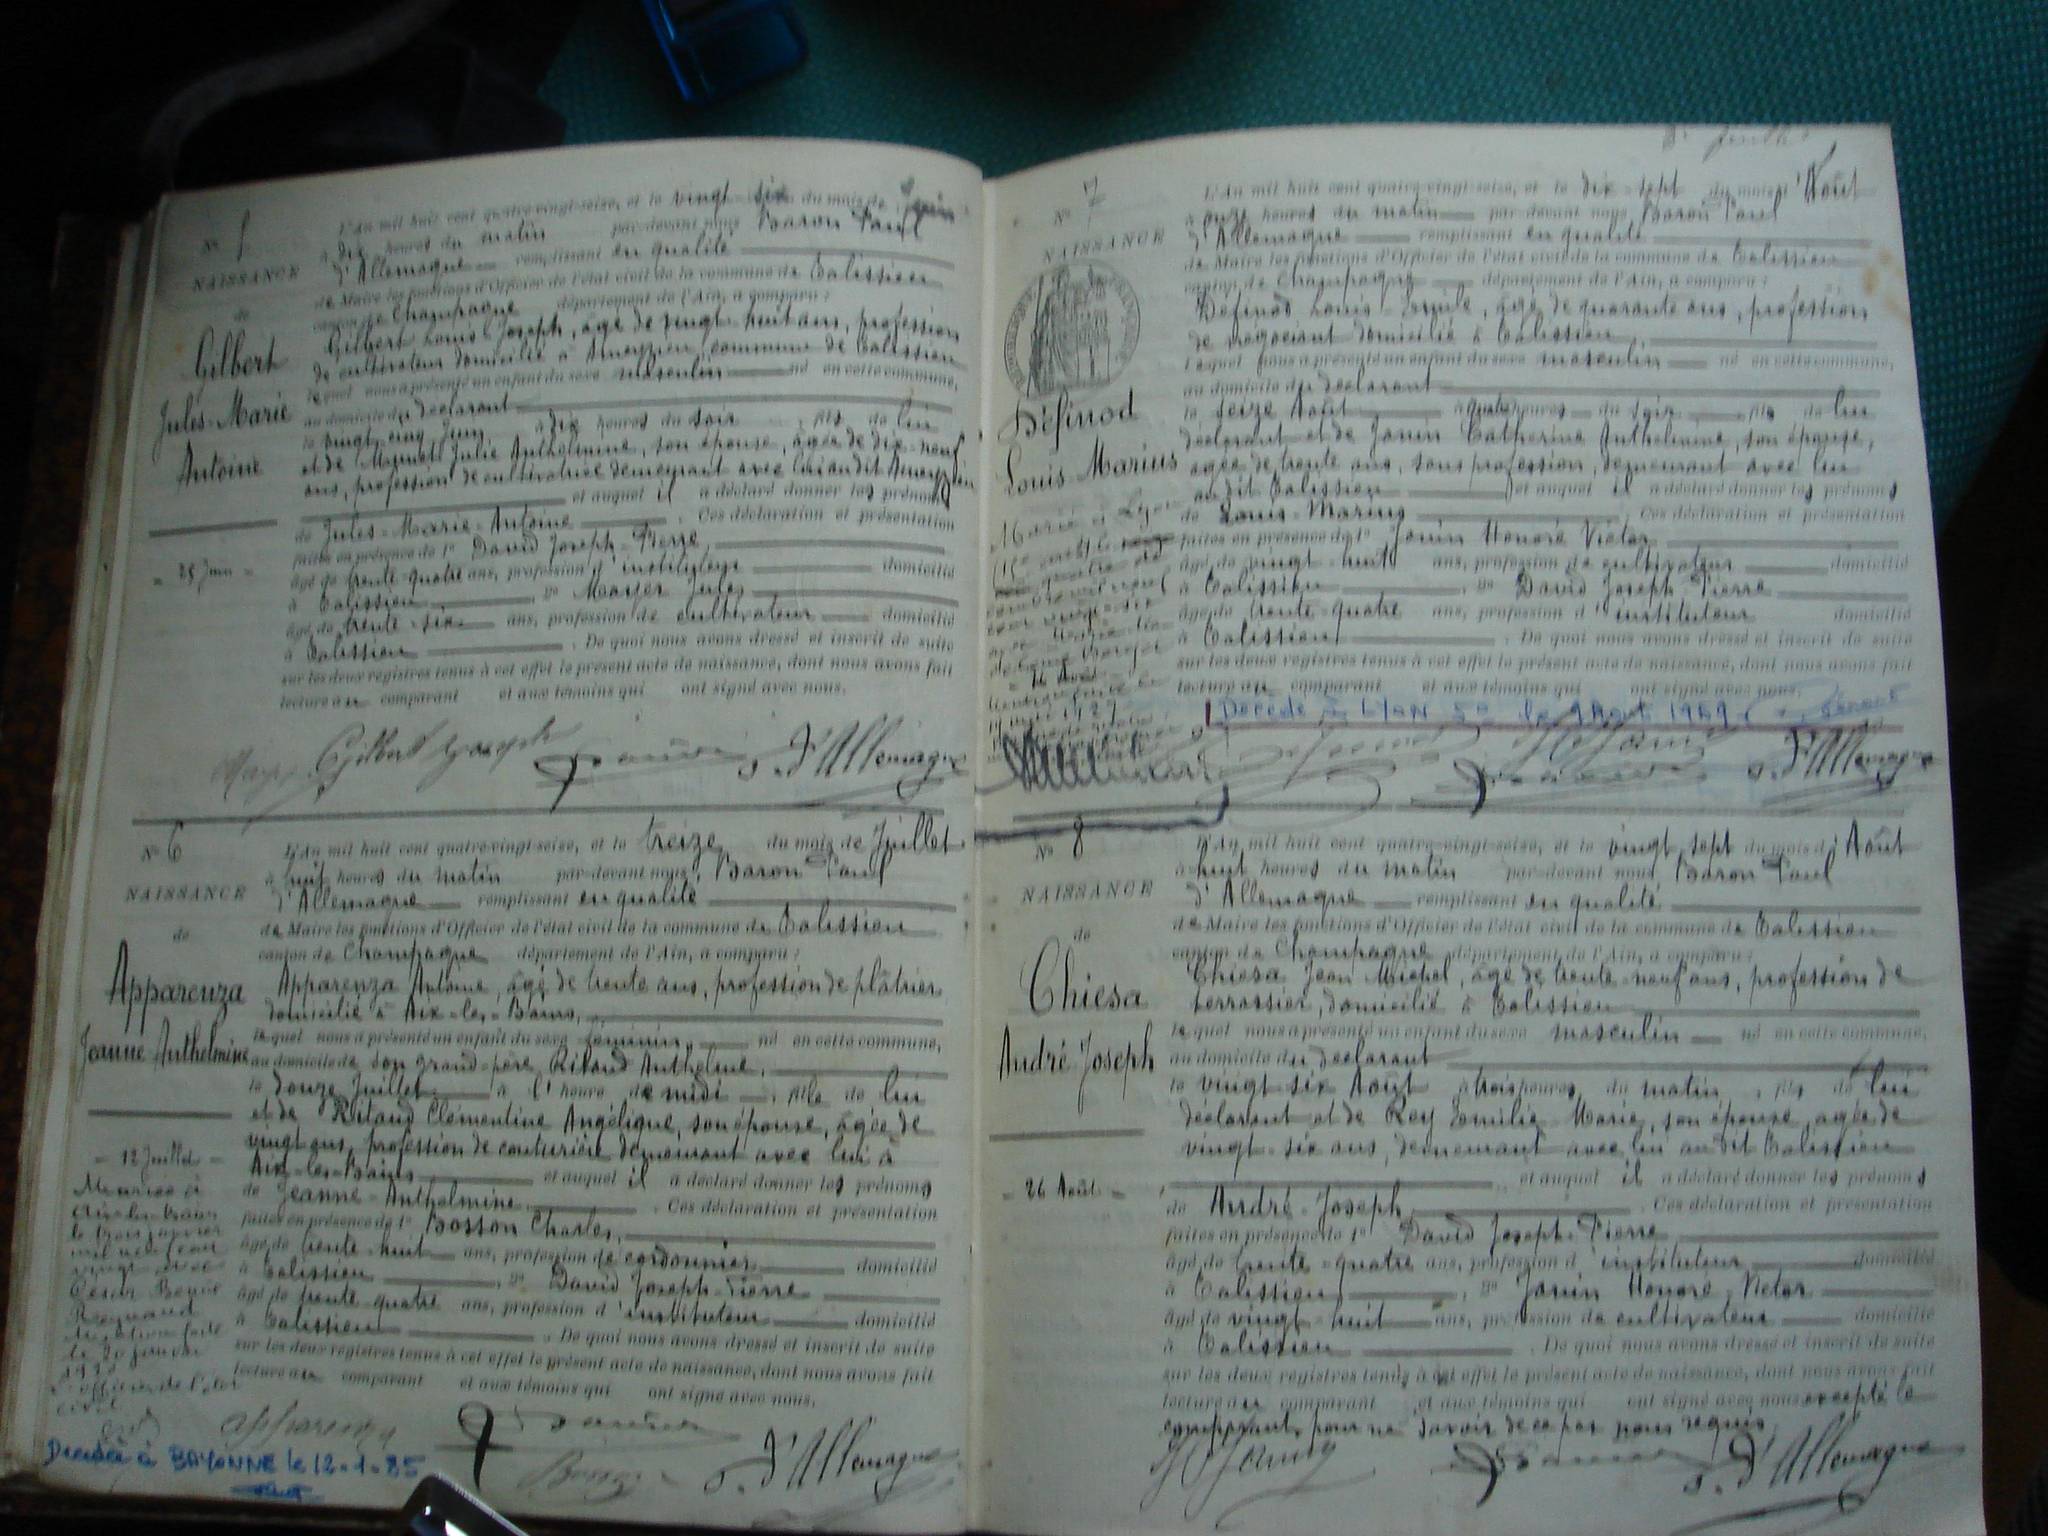 N° 5
NAISSANCE
de
Gilbert
Jules-Marie
Antoine
- 25 Juin -
L'An mil huit cent quatre-vingt-seize, et le vingt-six du mois de Juin
à dix heures du matin par-devant nous Baron Paul
d'Allemagne remplissant en qualité
de Maire les fonctions d'Officier de l'état civil de la commune de Talissieu
canton de Champagne département de l'Ain, a comparu :
Gilbert Louis-Joseph, âgé de vingt-huit ans, profession
de cultivateur domicilié à Ameyzieu, commune de Talissieu
lequel nous a présenté un enfant du sexe masculin né en cette commune,
au domicile du déclarant
le vingt-cinq Juin à dix heures du soir fils de lui
et de Julie Anthelmine, son épouse, âgée de dix-neuf
ans, profession de cultivatrice demeurant avec lui au dit Ameyzieu
et auquel il a déclaré donner les prénoms
de Jules-Marie-Antoine. Ces déclaration et présentation
faites en présence de 1° David Joseph-Pierre,
âgé de trente-quatre ans, profession d'instituteur domicilié
à Talissieu, 2° Mayer Jules
âgé de trente-six ans, profession de cultivateur domicilié
à Talissieu. De quoi nous avons dressé et inscrit de suite
sur les deux registres tenus à cet effet le présent acte de naissance, dont nous avons fait
lecture au comparant et aux témoins qui ont signé avec nous.
Gilbert Joseph David d'Allemagne
N° 6
NAISSANCE
de
Apparenza
Jeanne Anthelmine
- 12 Juillet -
Mariée à
Aix-les-Bains
le trois janvier
mil neuf cent
vingt avec
César
le 20 janvier
1920
L'officier de l'état
civil
L'An mil huit cent quatre-vingt-seize, et le treize du mois de Juillet
à huit heures du matin par-devant nous, Baron Paul
d'Allemagne remplissant en qualité
de Maire les fonctions d'Officier de l'état civil de la commune de Talissieu
canton de Champagne département de l'Ain, a comparu :
Apparenza Antoine, âgé de trente ans, profession de plâtrier
domicilié à Aix-les-Bains,
lequel nous a présenté un enfant du sexe féminin, né en cette commune,
au domicile de son grand-père, Ritaud Anthelme,
le douze Juillet à l'heure de midi, fille de lui
et de Ritaud Clémentine Angélique, son épouse, âgée de
vingt ans, profession de couturière demeurant avec lui à
Aix-les-Bains et auquel il a déclaré donner les prénoms
de Jeanne-Anthelmine. Ces déclaration et présentation
faites en présence de 1° Bosson Charles,
âgé de trente-huit ans, profession de cordonnier domicilié
à Talissieu, 2° David Joseph-Pierre
âgé de trente-quatre ans, profession d'instituteur domicilié
à Talissieu. De quoi nous avons dressé et inscrit de suite
sur les deux registres tenus à cet effet le présent acte de naissance, dont nous avons fait
lecture au comparant et aux témoins qui ont signé avec nous.
Apparenza David
Décédée à BAYONNE le 12-1-85
d'Allemagne
N° 7
NAISSANCE
Définod
Louis Marius
Marié à Lyon
16 Août
L'An mil huit cent quatre-vingt-seize, et le dix-sept du mois d'Août
à onze heures du matin par-devant nous Baron Paul
d'Allemagne remplissant en qualité
de Maire les fonctions d'Officier de l'état civil de la commune de Talissieu
canton de Champagne département de l'Ain, a comparu :
Définod Louis-Emile, âgé de quarante ans, profession
de négociant domicilié à Talissieu,
lequel nous a présenté un enfant du sexe masculin né en cette commune,
au domicile du déclarant
le seize Août à quatre heures du soir fils de lui
déclarant et de Janin Catherine Anthelmine, son épouse,
âgée de trente ans, sans profession, demeurant avec lui
au dit Talissieu et auquel il a déclaré donner les prénoms
de Louis-Marius. Ces déclaration et présentation
faites en présence de 1° Janin Honoré Victor
âgé de vingt-huit ans, profession de cultivateur domicilié
à Talissieu, 2° David Joseph-Pierre
âgé de trente-quatre ans, profession d'instituteur domicilié
à Talissieu. De quoi nous avons dressé et inscrit de suite
sur les deux registres tenus à cet effet le présent acte de naissance, dont nous avons fait
lecture au comparant et aux témoins qui ont signé avec nous.
Décédé à LYON 5e le Août 1969
d'Allemagne
N° 8
NAISSANCE
de
Chiesa
André Joseph
- 26 Août -
L'An mil huit cent quatre-vingt-seize, et le vingt-sept du mois d'Août
à huit heures du matin par-devant nous, Baron Paul
d'Allemagne remplissant en qualité
de Maire les fonctions d'Officier de l'état civil de la commune de Talissieu
canton de Champagne, département de l'Ain, a comparu :
Chiesa Jean Michel, âgé de trente-neuf ans, profession de
terrassier, domicilié à Talissieu
lequel nous a présenté un enfant du sexe masculin né en cette commune,
au domicile du déclarant
le vingt-six Août à trois heures du matin, fils de lui
déclarant et de Rey Emilie Marie, son épouse, âgée de
vingt-six ans, demeurant avec lui au dit Talissieu
et auquel il a déclaré donner les prénoms
de André-Joseph. Ces déclaration et présentation
faites en présence de 1° David Joseph-Pierre
âgé de trente-quatre ans, profession d'instituteur domicilié
à Talissieu, 2° Janin Honoré-Victor
âgé de vingt-huit ans, profession de cultivateur domicilié
à Talissieu. De quoi nous avons dressé et inscrit de suite
sur les deux registres tenus à cet effet le présent acte de naissance, dont nous avons fait
lecture au comparant et aux témoins qui ont signé avec nous excepté le
comparant pour ne savoir de ce par nous requis
d'Allemagne